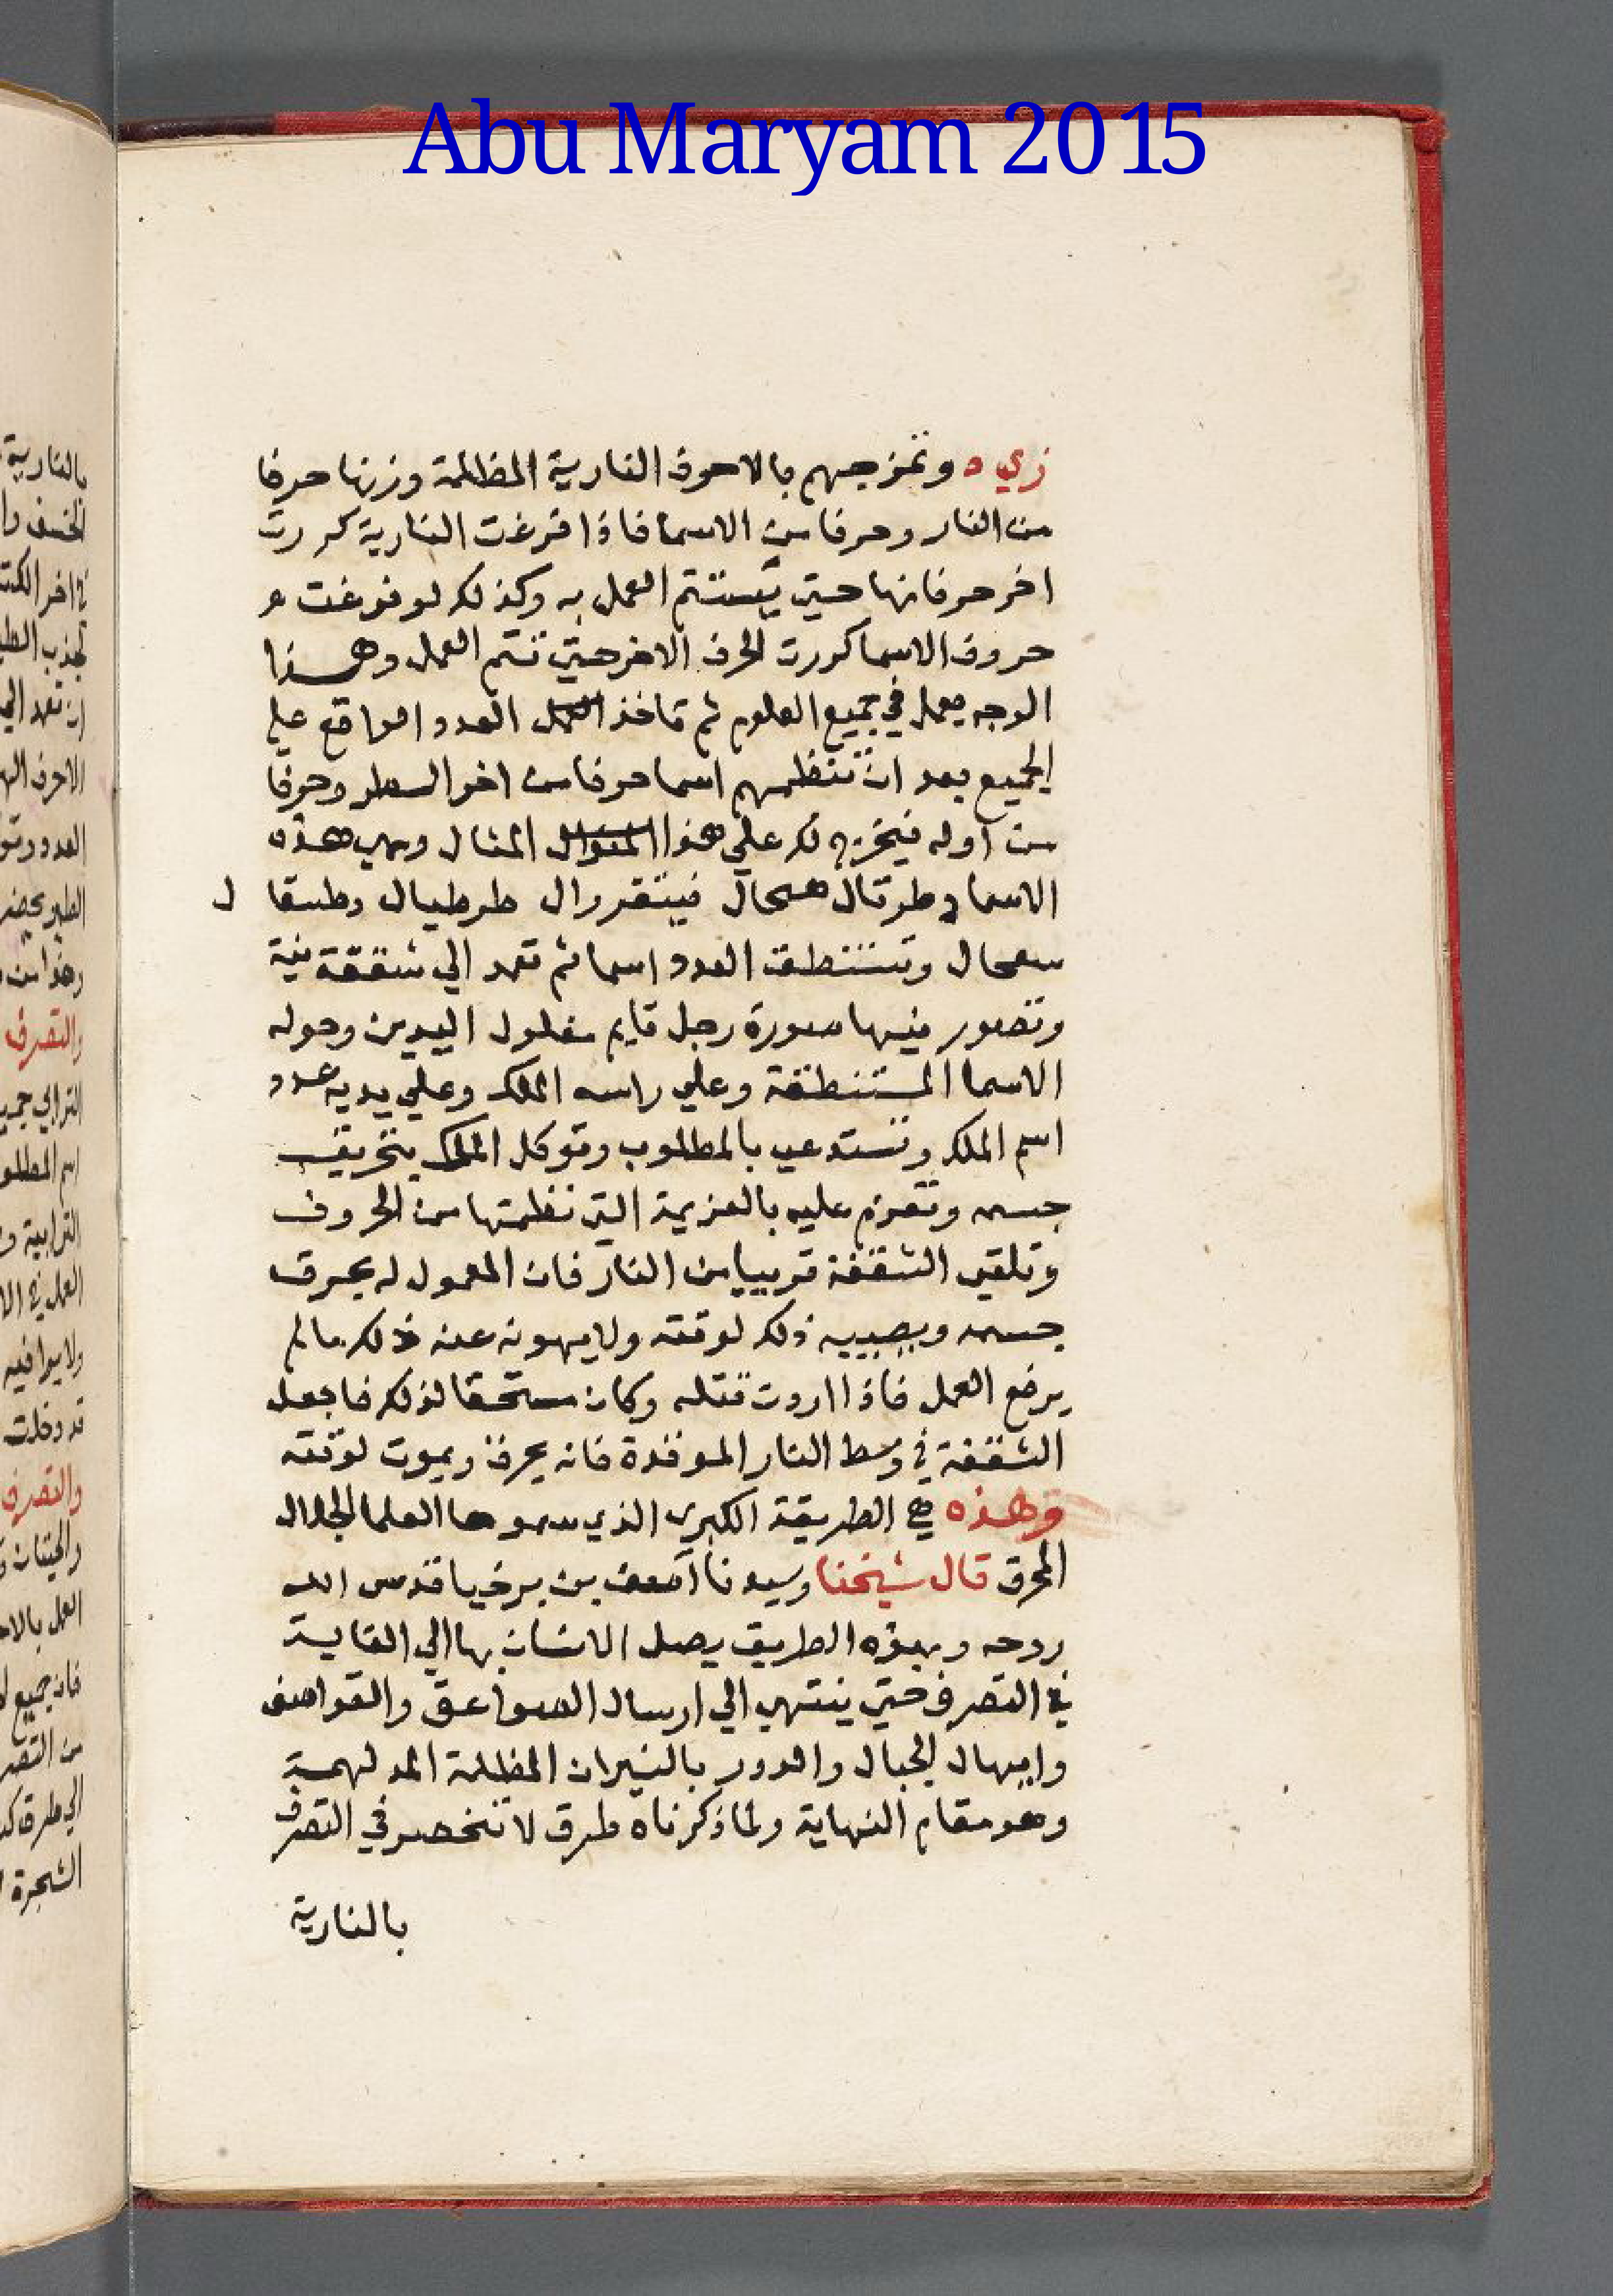 Abu Maryam 2015
زي ه وتمزجهم بالاحرف النارية المظلمة وزنها حرفا
من النار وحرفا من الاسما فاذا فرغت النارية كررت
اخر حرفا نها حتي يستتم العمل به وكذلك لو فرغت
حروف الاسما كررت الحرف الاخر حتي تتم العمل وهذا
الوجه يعمل في جميع العلوم ثم تاخذ العمل العدد الواقع علي
الجميع بعد ان تنظمهم اسما حرفا من اخر السطر وحرفا
من اوله فيخرج لك علي هذا المنوال المثال وهي هذه
الاسما طرتال هسحال فيتقررال طرطيال وطسقا ل
سعحال وتستنطق العدد اسما ثم تعمد الي شقفة نية
وتصور فيها صورة رجل قايم مغلول اليدين وحوله
الاسما المستنطقة وعلي راسه الملك وعلي يديه عدد
اسم الملك وتستدعي بالمطلوب وتوكل الملك بتحريق
جسمه وتعزم عليه بالعزيمة التي نظمتها من الحروف
وتلقي الشقفة قريبا من النار فان المعمول له يحرق
جسمه ويصيبه ذلك لوقته ولا يهون عنه ذلك مالم
يرفع العمل فاذا اردت قتله وكان مستحقا لذلك فاجعل
الشقفة في وسط النار الموقدة فانه يحرق ويموت لوقته
وهذه هي الطريقة الكبري الذي سموها العلما الجلال
المحرق قال شيخنا وسيدنا آصف بن برخيا قدس الله
روحه وبهذه الطريق يصل الانسان بها الي الغاية
في التصرف حتي ينتهي الي ارسال الصواعق والقواصف
وابهال الجبال والدور بالنيران المظلمة المدلهمة
وهو مقام النهاية ولما ذكرناه طرق لا تنحصر في التصرف
بالنارية